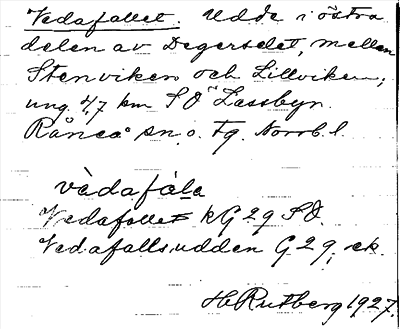 Vedafallet. Udde i östra
delen av Degerselet, mellan
Stenviken och Lillviken;
ung. 4,7 km SO Lassbyn.
Råneå sn. o. Tg. Norrb. l.
vèdafála
Vedafallet kG 29 SO.
Vedafallsudden G 29, ek.
H Rutberg 1927.